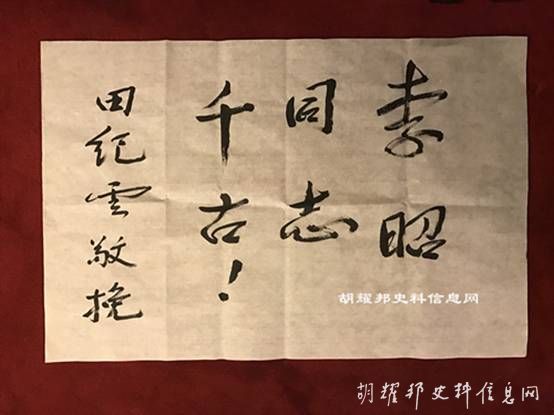 李昭
同志
千古！
田纪雲敬挽
胡耀邦史料信息网
胡耀邦史料信息网